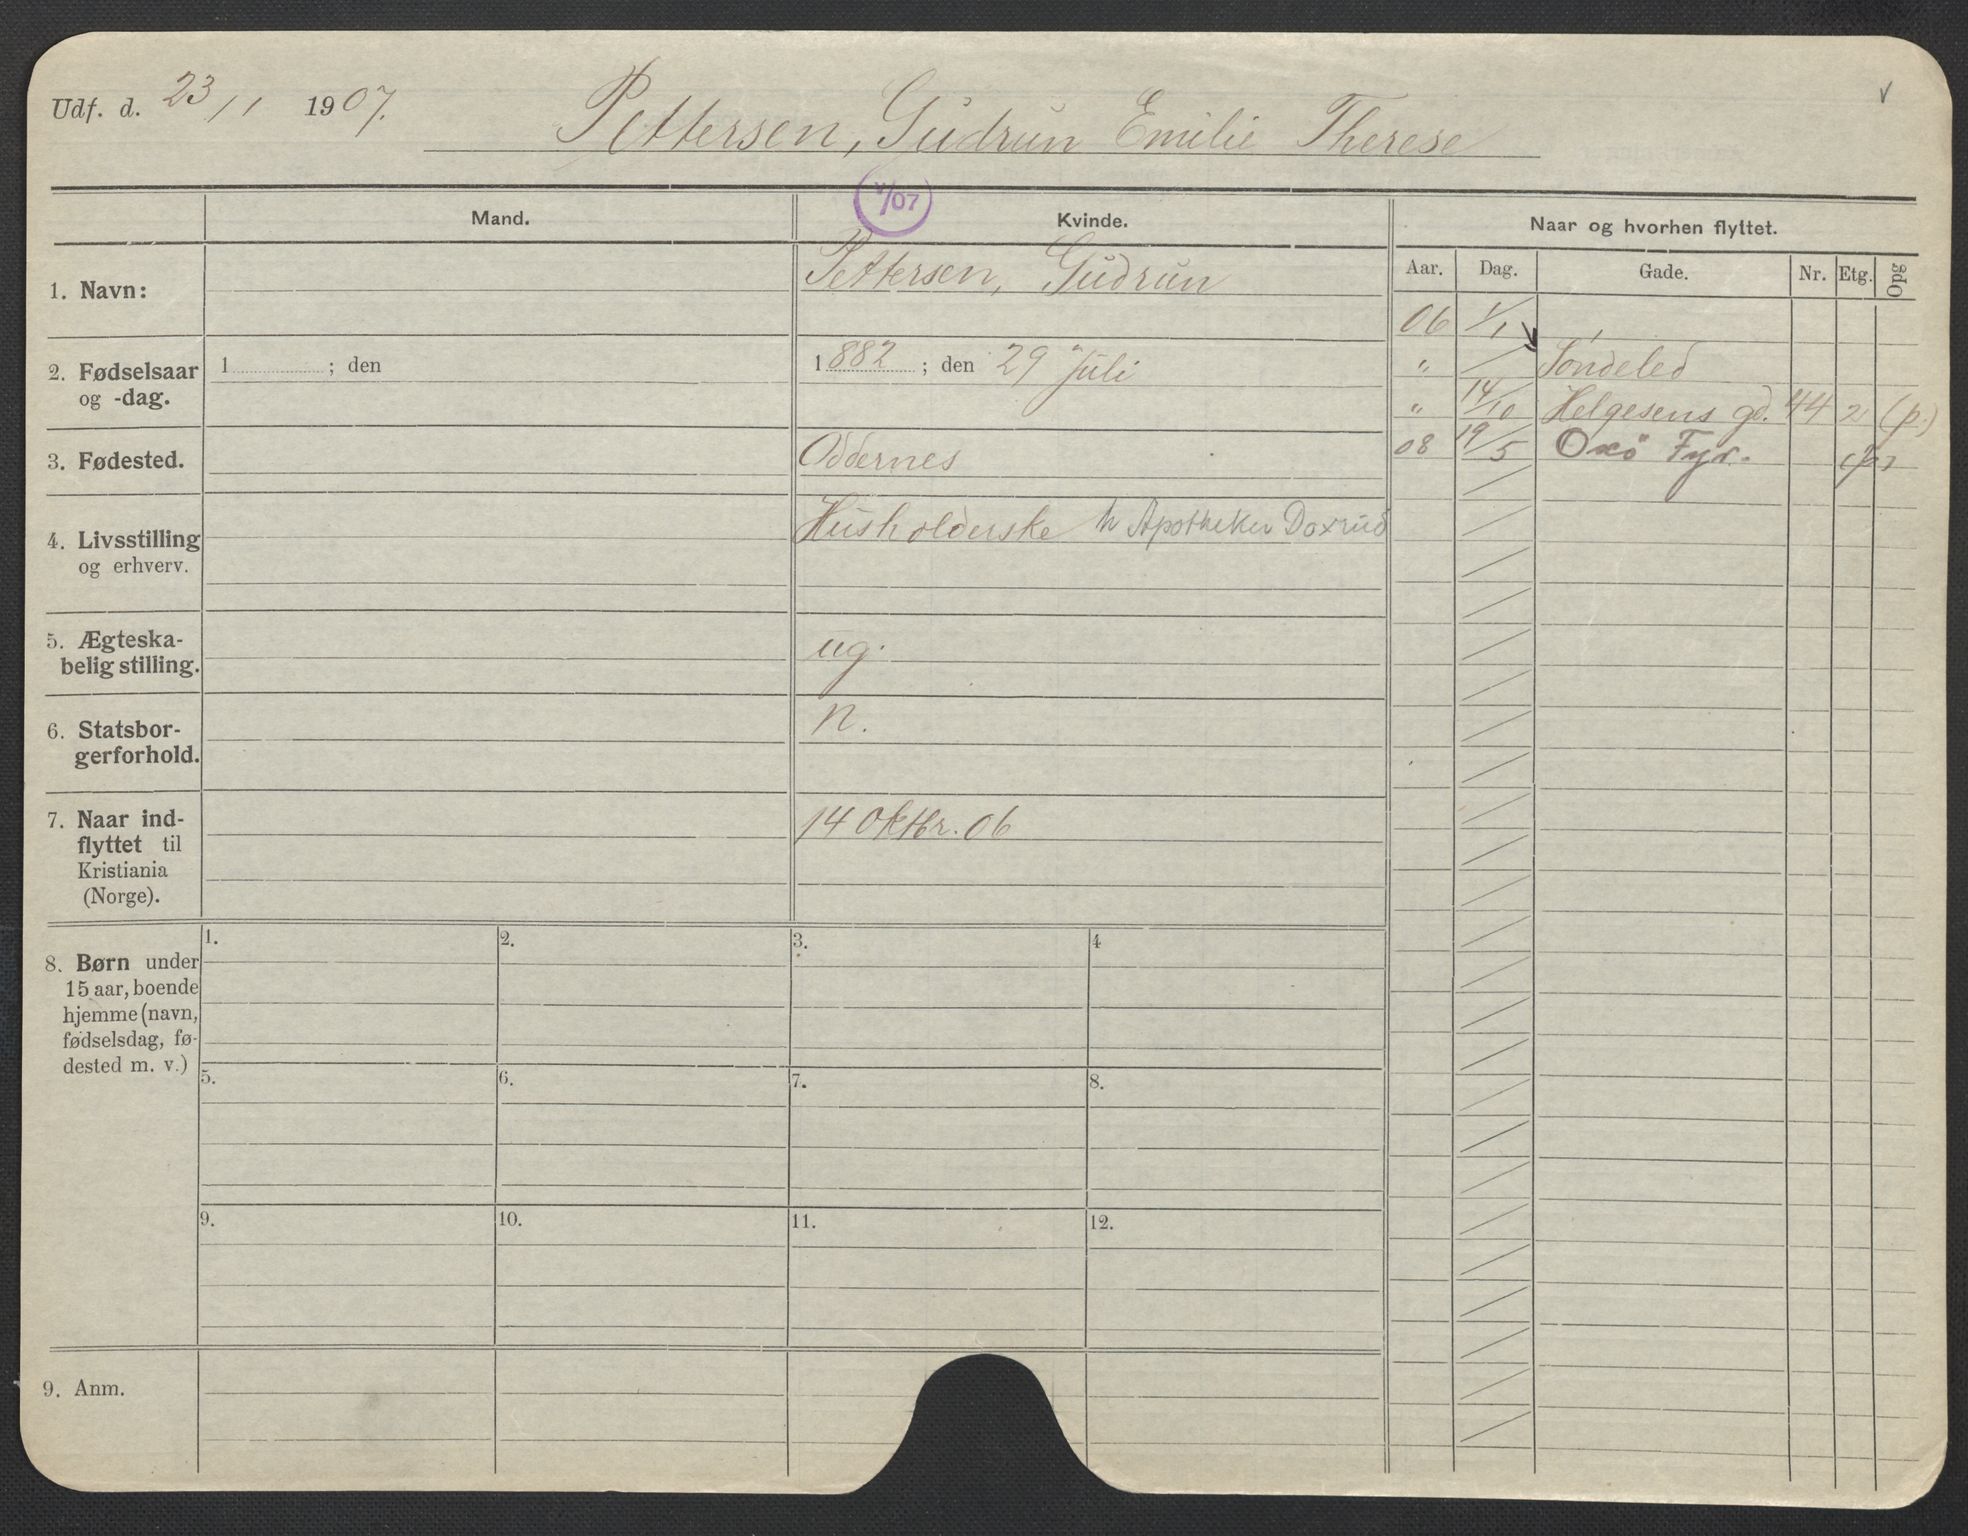 Udf. d. 23/1 1907.
Pettersen, Gudrun Emilie Therese
v
V/07
Mand.
Kvinde.
Naar og hvorhen flyttet.
Aar. Dag. Gade. Nr. Etg. Opg
1. Navn:
Pettersen, Gudrun
2. Fødselsaar
og -dag.
1 ; den
1882 ; den 29 Juli
3. Fødested.
Oddernes
4. Livsstilling
og erhverv.
Husholderske h Apotheker Doxrud
5. Ægteska-
belig stilling.
ug.
6. Statsbor-
gerforhold.
n.
7. Naar ind-
flyttet til
Kristiania
(Norge).
14 Oktbr. 06
06 1/1
" Söndeled
" 14/10 Helgesens gd. 44 2 (p.)
08 19/5 Oxö Fyr. (p)
8. Børn under
15 aar, boende
hjemme (navn,
fødselsdag, fø-
dested m. v.)
1. 2. 3. 4
5. 6. 7. 8.
9. 10. 11. 12.
9. Anm.